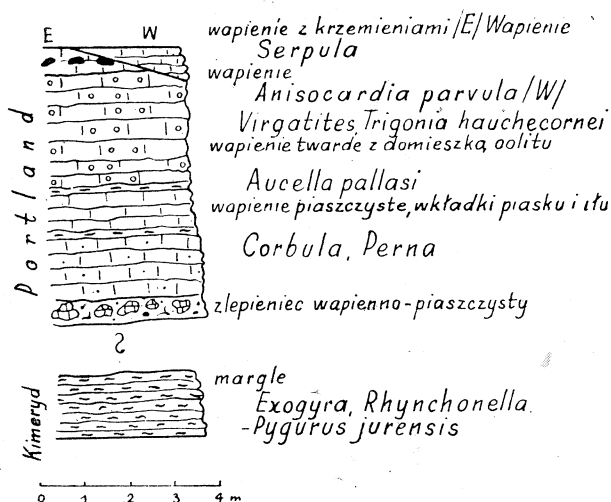 E W
wapienie z krzemieniami /E/ Wapienie
Serpula
wapienie
Anisocardia parvula /W/
Virgatites, Trigonia hauchecornei
wapienie twarde z domieszką oolitu
Aucella pallasi
wapienie piaszczyste, wkładki piasku i iłu
Corbula, Perna
zlepieniec wapienno-piaszczysty
Portland
?
margle
Exogyra, Rhynchonella
-Pygurus jurensis
Kimeryd
0 1 2 3 4 m